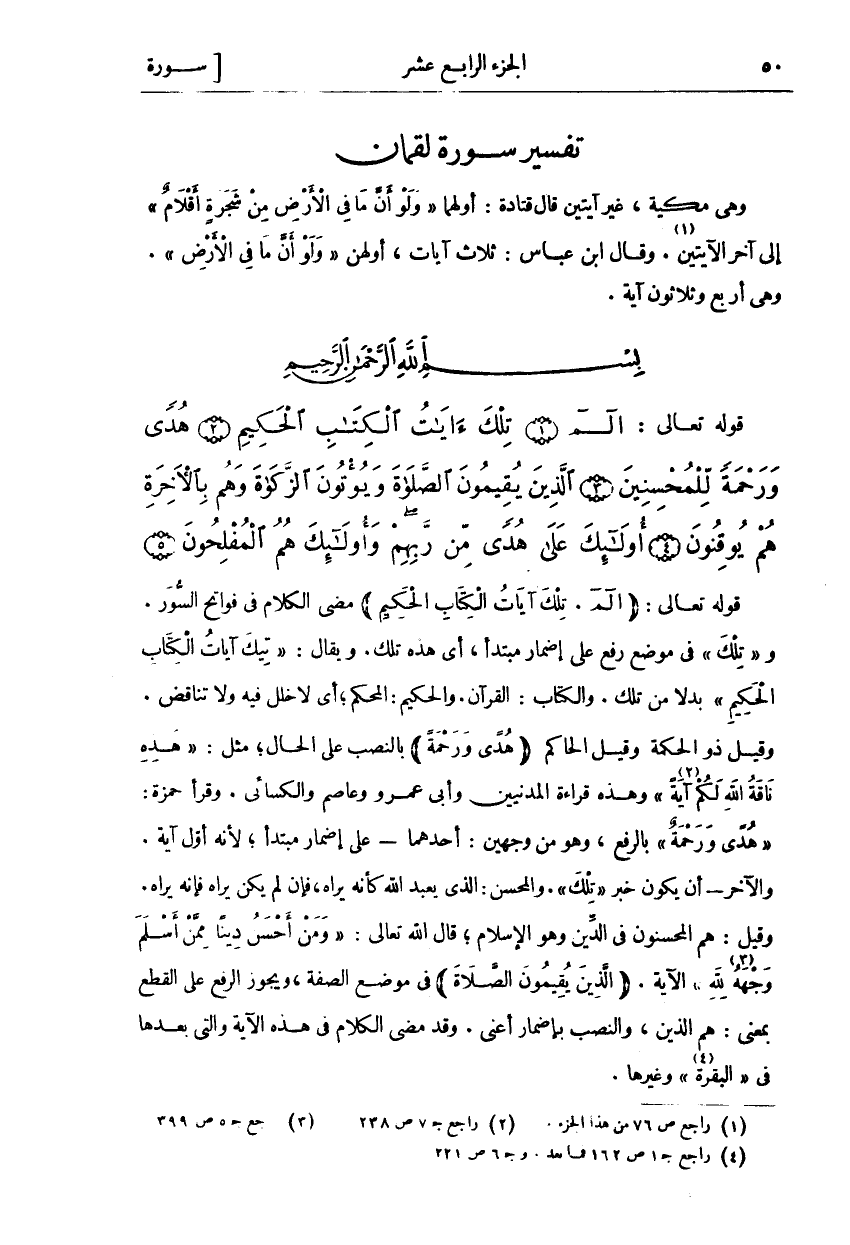 ٥٠ الجزء الرابع عشر [ سورة
تفسير سورة لقمان
وهى مكية ، غير آيتين قال قتادة : أولهما « وَلَوْ أَنَّ مَا فِى الْأَرْضِ مِنْ شَجَرَةٍ أَقْلَامٌ »
إلى آخر الآيتين (١) . وقال ابن عباس : ثلاث آيات ، أولهن « وَلَوْ أَنَّ مَا فِى الْأَرْضِ » .
وهى أربع وثلاثون آية .
بِسْمِ ٱللَّهِ ٱلرَّحْمَٰنِ ٱلرَّحِيمِ
قوله تعالى : الٓمٓ ﴿١﴾ تِلْكَ ءَايَٰتُ ٱلْكِتَٰبِ ٱلْحَكِيمِ ﴿٢﴾ هُدًى
وَرَحْمَةً لِّلْمُحْسِنِينَ ﴿٣﴾ ٱلَّذِينَ يُقِيمُونَ ٱلصَّلَوٰةَ وَيُؤْتُونَ ٱلزَّكَوٰةَ وَهُم بِٱلْأَخِرَةِ
هُمْ يُوقِنُونَ ﴿٤﴾ أُولَٰٓئِكَ عَلَىٰ هُدًى مِّن رَّبِّهِمْ ۖ وَأُولَٰٓئِكَ هُمُ ٱلْمُفْلِحُونَ ﴿٥﴾
قوله تعالى : ﴿ الٓمٓ . تِلْكَ آيَاتُ الْكِتَابِ الْحَكِيمِ ﴾ مضى الكلام فى فواتح السُّوَر .
و « تِلْكَ » فى موضع رفع على إضمار مبتدأ ، أى هذه تلك . ويقال : « تِيكَ آيَاتُ الْكِتَابِ
الْحَكِيمِ » بدلا من تلك . والكتاب : القرآن . والحكيم : المحكم ؛ أى لا خلل فيه ولا تناقض .
وقيل ذو الحكمة وقيل الحاكم ﴿ هُدًى وَرَحْمَةً ﴾ بالنصب على الحال ؛ مثل : « هَذِهِ
نَاقَةُ اللهِ لَكُمْ آيَةً (٢) » وهذه قراءة المدنيين وأبى عمرو وعاصم والكسائى . وقرأ حمزة :
« هُدًى وَرَحْمَةٌ » بالرفع ، وهو من وجهين : أحدهما — على إضمار مبتدأ ؛ لأنه أوّل آية .
والآخر — أن يكون خبر « تِلْكَ » . والمحسن : الذى يعبد الله كأنه يراه ، فإن لم يكن يراه فإنه يراه .
وقيل : هم المحسنون فى الدِّين وهو الإسلام ؛ قال الله تعالى : « وَمَنْ أَحْسَنُ دِينًا مِمَّنْ أَسْلَمَ
وَجْهَهُ لِلهِ (٣) » الآية . ﴿ الَّذِينَ يُقِيمُونَ الصَّلَاةَ ﴾ فى موضع الصفة ، ويجوز الرفع على القطع
بمعنى : هم الذين ، والنصب بإضمار أعنى . وقد مضى الكلام فى هذه الآية والتى بعدها
فى « البقرة (٤) » وغيرها .
(١) راجع ص ٧٦ من هذا الجزء . (٢) راجع جـ ٧ ص ٢٣٨ (٣) جع جـ ٥ ص ٣٩٩
(٤) راجع جـ ١ ص ١٦٢ فما بعد . و جـ ٦ ص ٢٢١